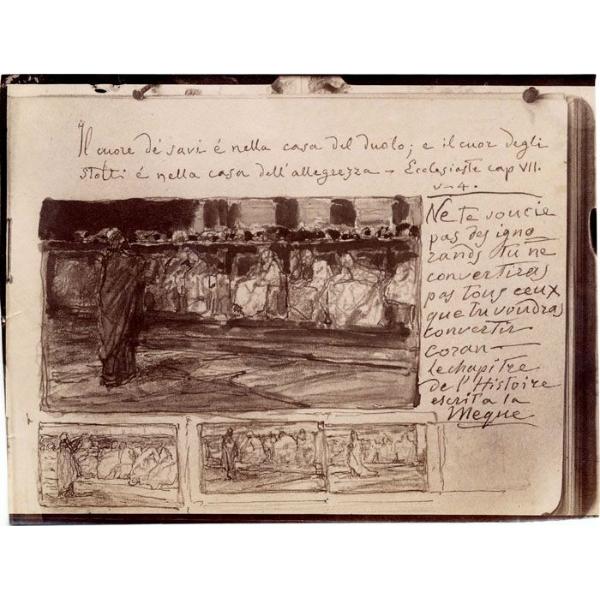 Il cuore de' savi é nella casa del duolo; e il cuor degli
stolti é nella casa dell'allegrezza - Ecclesiaste cap VII.
v-4.
Ne te soucie
pas des igno
rands tu ne
convertiras
pas tous ceux
que tu voudras
convertir
coran -
le chapitre
de l'Histoire
escrit a la
Meque